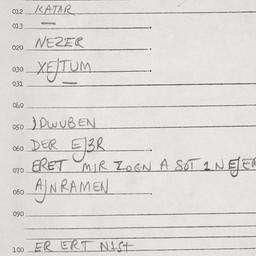 012 KATAR
013
020 NEZER
030 XEJTUM
031
040
050 JDWUBEN
060 DER EJ3R
070 ERET MIR ZOGN A SOT 1 N EJER
080 AJNRAMEN
090
100 ER ERT NIST